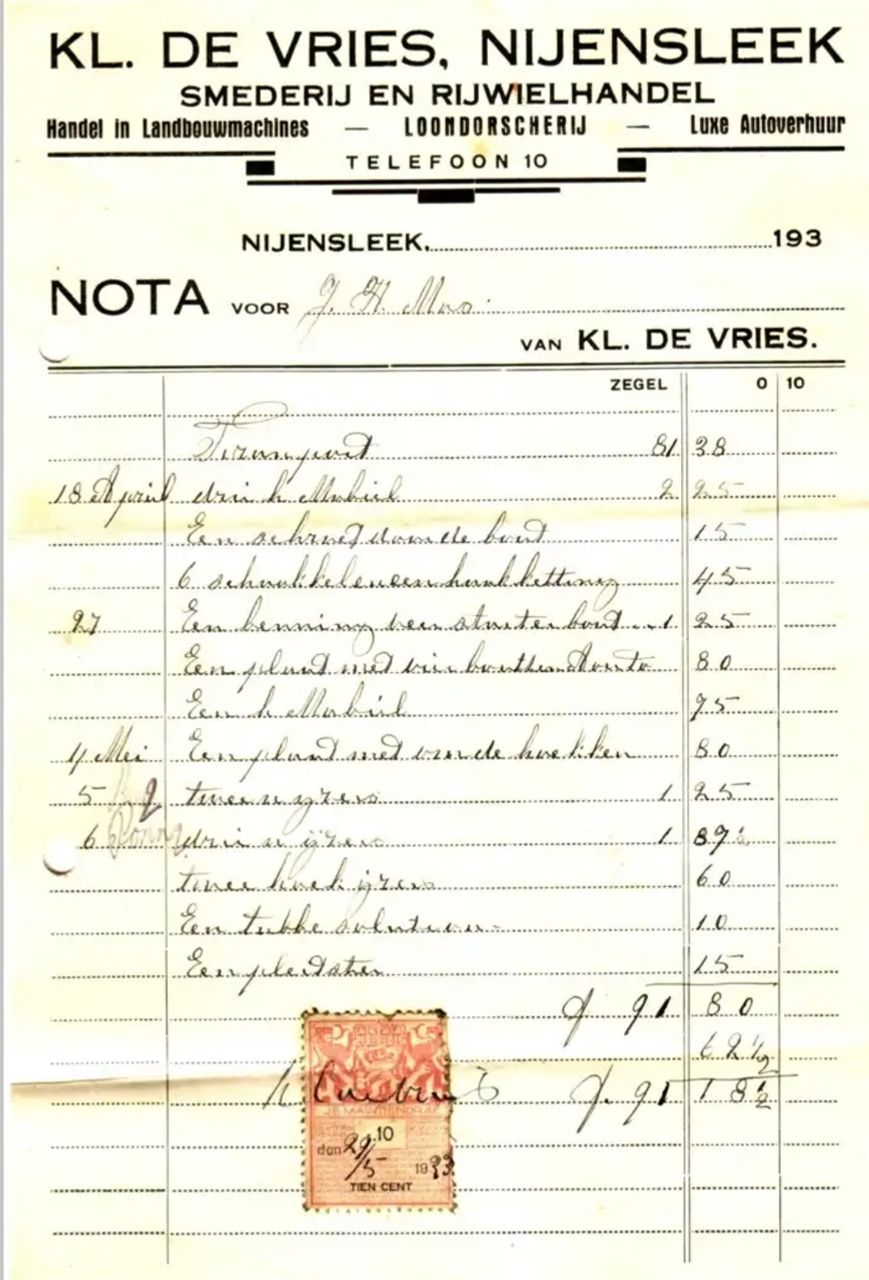 KL. DE VRIES, NIJENSLEEK
SMEDERIJ EN RIJWIELHANDEL
Handel in Landbouwmachines — LOONDORSCHERIJ — Luxe Autoverhuur
TELEFOON 10
NIJENSLEEK, 193
NOTA VOOR J. H. Mos
VAN KL. DE VRIES.
ZEGEL 0 10
Transport 81 38
18 April drie k Mobiel 2 25
Een bout 15
6 schakkelen een haakketting 45
27 Een bout 1 25
Een plaat met vier boutten Aouto 80
Een k Mobiel 75
4 Mei Een plaat met ronde hoekken 80
5 twee n yzers 1 25
6 drie n ijzers 1 87½
twee hoek ijzers 60
Een tubbe solution 10
Een 15
f 91 80
62½
f 91 18½
10
den 29/5 1933
TIEN CENT